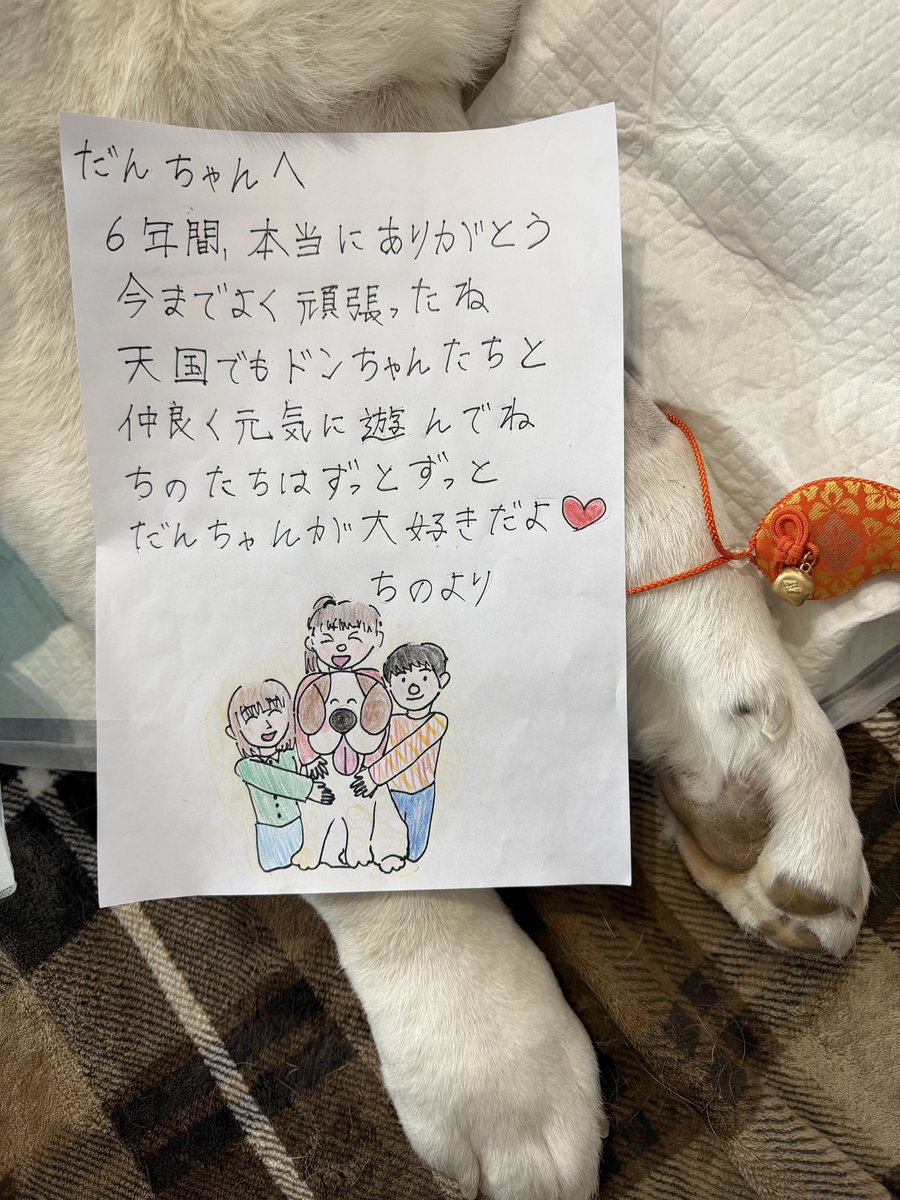 だんちゃんへ
6年間、本当にありがとう
今までよく頑張ったね
天国でもドンちゃんたちと
仲良く元気に遊んでね
ちのたちはずっとずっと
だんちゃんが大好きだよ
ちのより